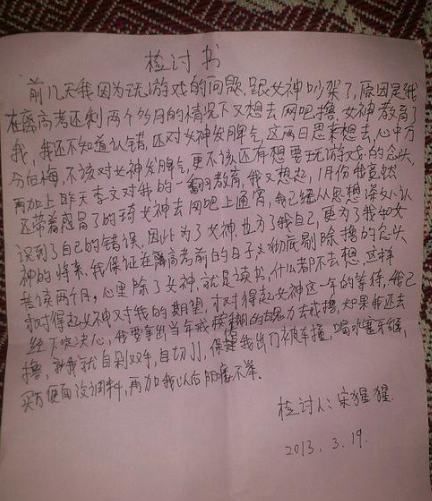 检讨书
前几天我因为玩游戏的问题，跟女神吵架了，原因是我
在离高考还剩两个多月的情况下又想去网吧撸，女神教育了
我，我还不知道认错，还对女神发脾气，这两日思来想去，心中万
分后悔，不该对女神发脾气，更不该还有想要玩游戏的念头，
再加上昨天李文对我的一翻教育，我又想起，1月份我竟然
还带着感冒了的琦女神去网吧上通宵，我已经从思想深处认
识到了自己的错误，因此为了女神也为了我自己，更为了我和女
神的将来，我保证在离高考前的日子必彻底剔除撸的念头
接读两个月，心里除了女神，就是读书，什么都不去想，这样
才对得起女神对我的期望，才对得起女神这一年的等待，我已
经下定决心，我要拿出当年我的力去戒撸，如果我还去
撸，那我就自剁双手，自切JJ，保佑我出门被车撞，喝水塞牙缝，
买方便面没调料，再加我以后阳痿不举。
检讨人：宋猩猩
2013.3.19.